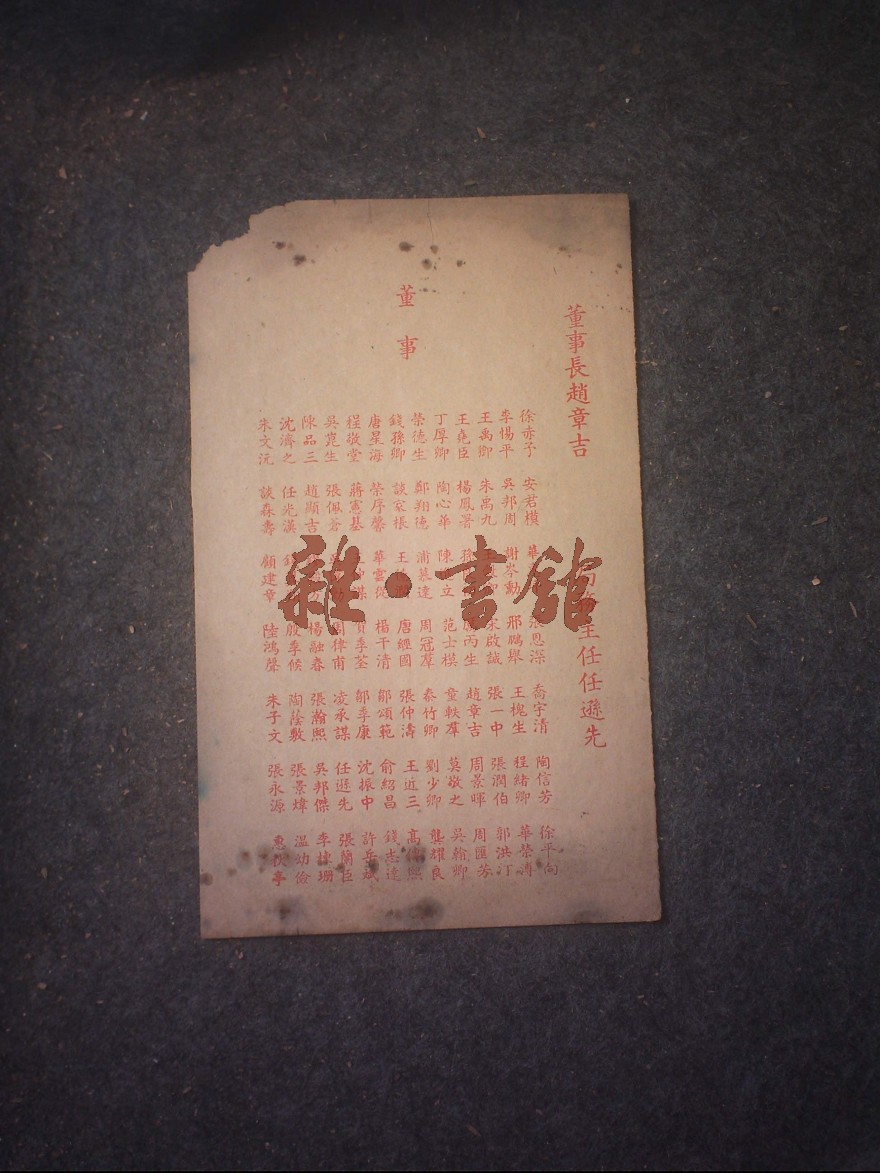 董事長趙章吉
主任任遜先
董事
徐赤子 安若模 華 張恩深 喬宇清 陶信芳 徐平向
李惕平 吳邦周 謝岑勳 邢鵬舉 王槐生 程緒卿 華榮溥
王禹卿 朱禹九 宋啟誠 張一中 張潤伯 郭洪汀
王堯臣 楊鳳署 丙生 趙章吉 周景暉 周匯芳
丁厚卿 陶心華 陳 立 范士模 童軼羣 莫敬之 吳翰卿
榮德生 鄭翔德 浦慕達 周冠羣 秦竹卿 劉少卿 龔耀良
錢孫卿 談家棖 王 唐經國 張仲濤 王近三 高 熙
唐星海 榮序馨 華雲從 楊干清 鄒頌範 俞紹昌 錢志達
程敬堂 蔣憲基 謀 貢季荃 鄒季康 沈振中 許岳
吳崑生 張佩蒼 周律甫 凌承謀 任遜先 張蘭臣
陳品三 趙顯吉 楊融春 張瀚熙 吳邦傑 李 珊
沈濟之 任光漢 錢 殷季候 陶蔭敷 張景煒 溫幼儉
朱文沅 談森壽 顧建章 陸鴻聲 朱子文 張永源 惠 亭
雜·書館